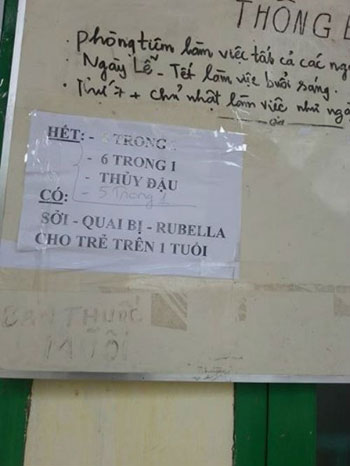 THÔNG
. Phòng tiêm làm việc tất cả các
. Ngày Lễ - Tết làm việc buổi sáng.
. Thứ 7 + chủ nhật làm việc như
HẾT: - TRONG
- 6 TRONG 1
- THỦY ĐẬU
CÓ: - 5 Trong 1
SỞI - QUAI BỊ - RUBELLA
CHO TRẺ TRÊN 1 TUỔI
BÁN THUỐC
MUỖI